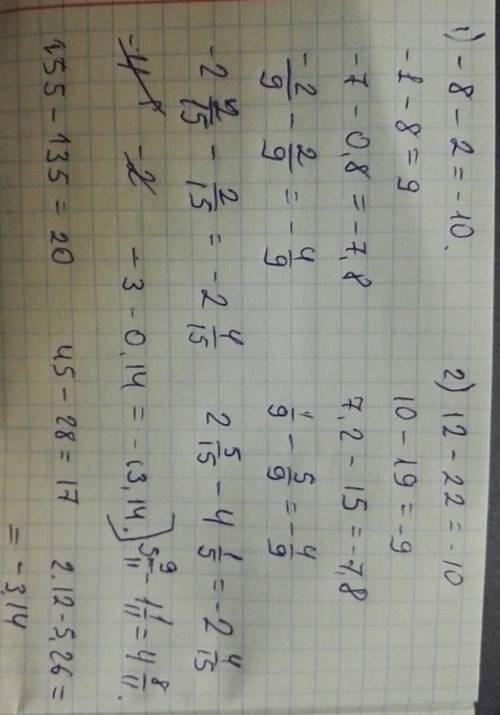 1) -8 - 2 = -10. 2) 12 - 22 = -10
-1 - 8 = 9 10 - 19 = -9
-7 - 0,8 = -7,8 7,2 - 15 = -7,8
-2/9 - 2/9 = -4/9 1/9 - 5/9 = -4/9
-2 2/15 - 2/15 = -2 4/15 2 5/15 - 4 1/5 = -2 4/15
-3 - 0,14 = -3,14. 5 9/11 - 1 1/11 = 4 8/11.
155 - 135 = 20 45 - 28 = 17 2.12 - 5,26 =
= -3,14